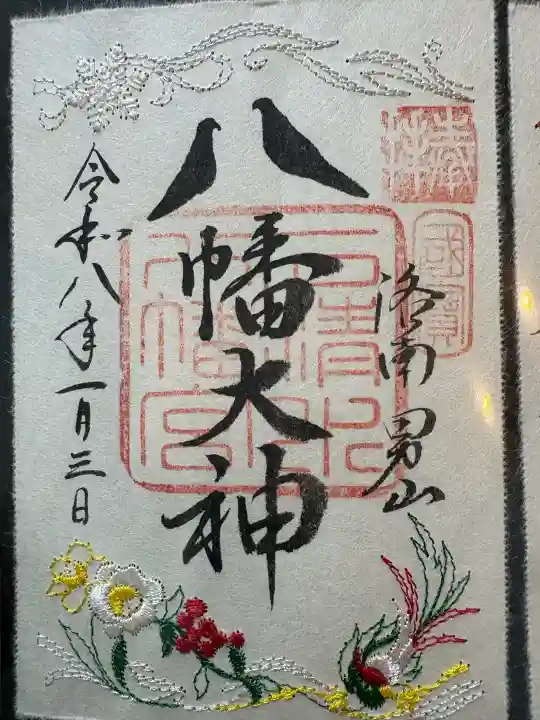 奉拝
國寶
洛南 男山
八幡大神
石清水
八幡宮
令和八年一月三日